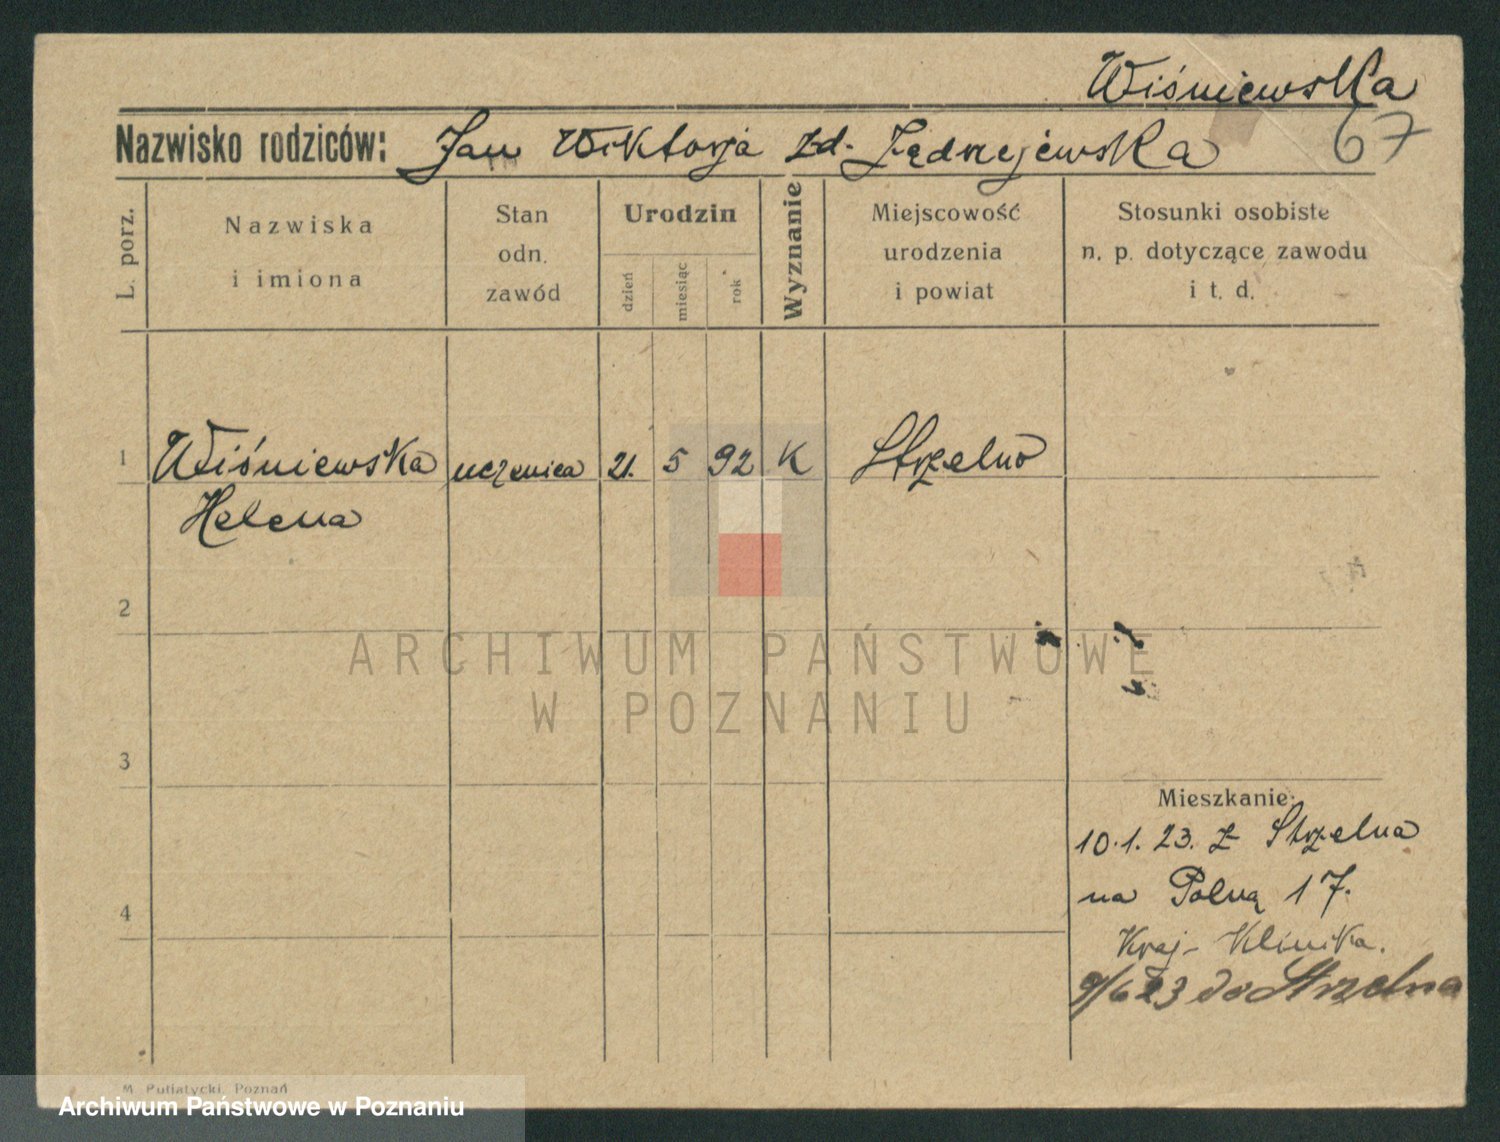 Wiśniewska
67
Nazwisko rodziców: Jan Wiktorja zd. Jędrzejewska
L. porz.
Nazwiska
i imiona
Stan
odn.
zawód
Urodzin
dzień
miesiąc
rok
Wyznanie
Miejscowość
urodzenia
i powiat
Stosunki osobiste
n. p. dotyczące zawodu
i t. d.
1 Wiśniewska uczenica 21. 5 92 K Strzelno
Helena
2
3
4
Mieszkanie:
10.1.23. z Strzelna
na Polną 17.
Kraj- Klinika.
9/6 23 do Strzelna
M. Putiatycki, Poznań
ARCHIWUM PAŃSTWOWE
W POZNANIU
Archiwum Państwowe w Poznaniu